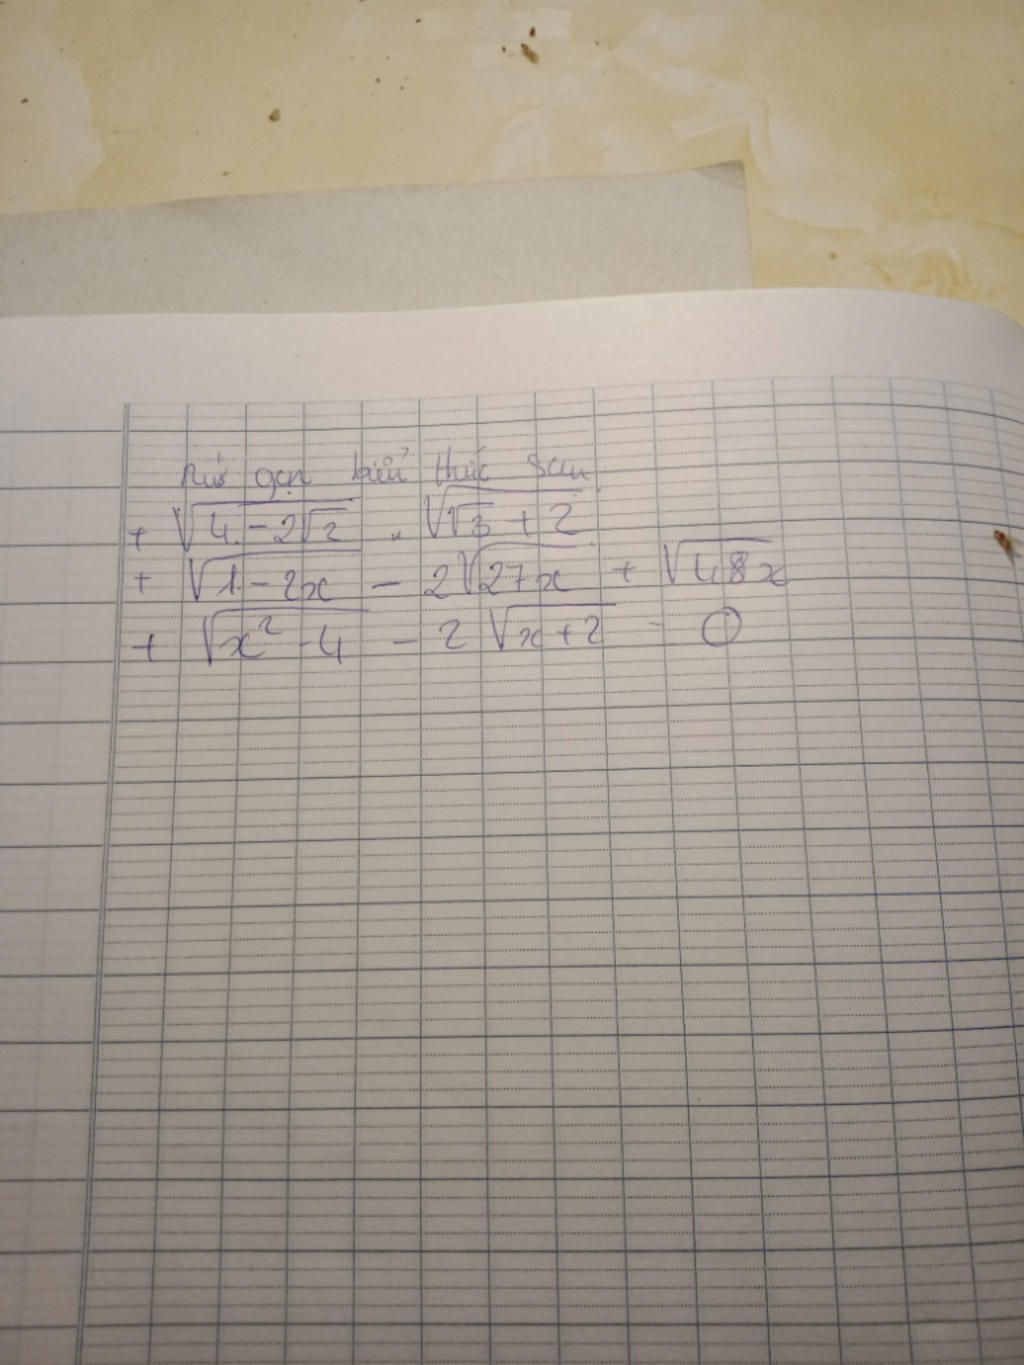 Rút gọn biểu thức sau
+ √(4 - 2√2) . √(√3 + 2)
+ √(1 - 2x) - 2√(27x) + √(48x)
+ √(x² - 4) - 2√(x + 2) - 0